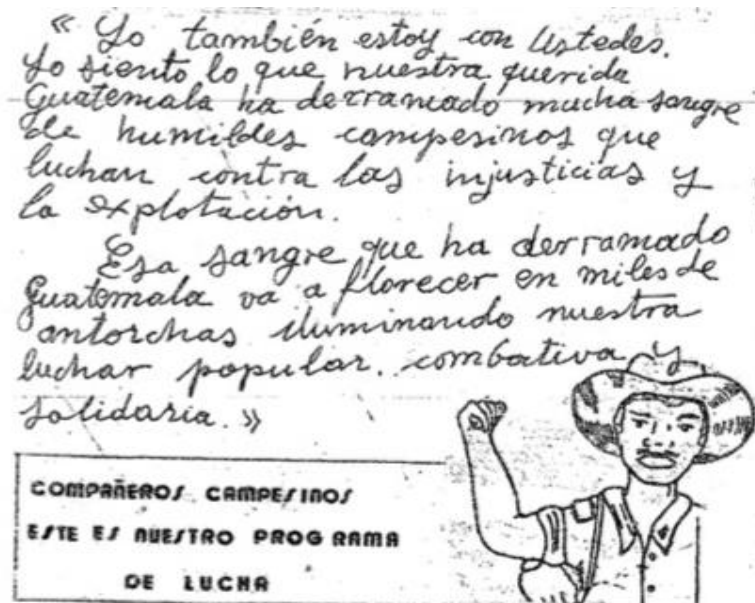 « Yo también estoy con Ustedes.
Yo siento lo que nuestra querida
Guatemala ha derramado mucha sangre
de humildes campesinos que
luchan contra las injusticias y
la explotación.
Esa sangre que ha derramado
Guatemala va a florecer en miles de
antorchas iluminando nuestra
luchar popular. combativa y
solidaria. »
COMPAÑEROS CAMPESINOS
ESTE ES NUESTRO PROGRAMA
DE LUCHA